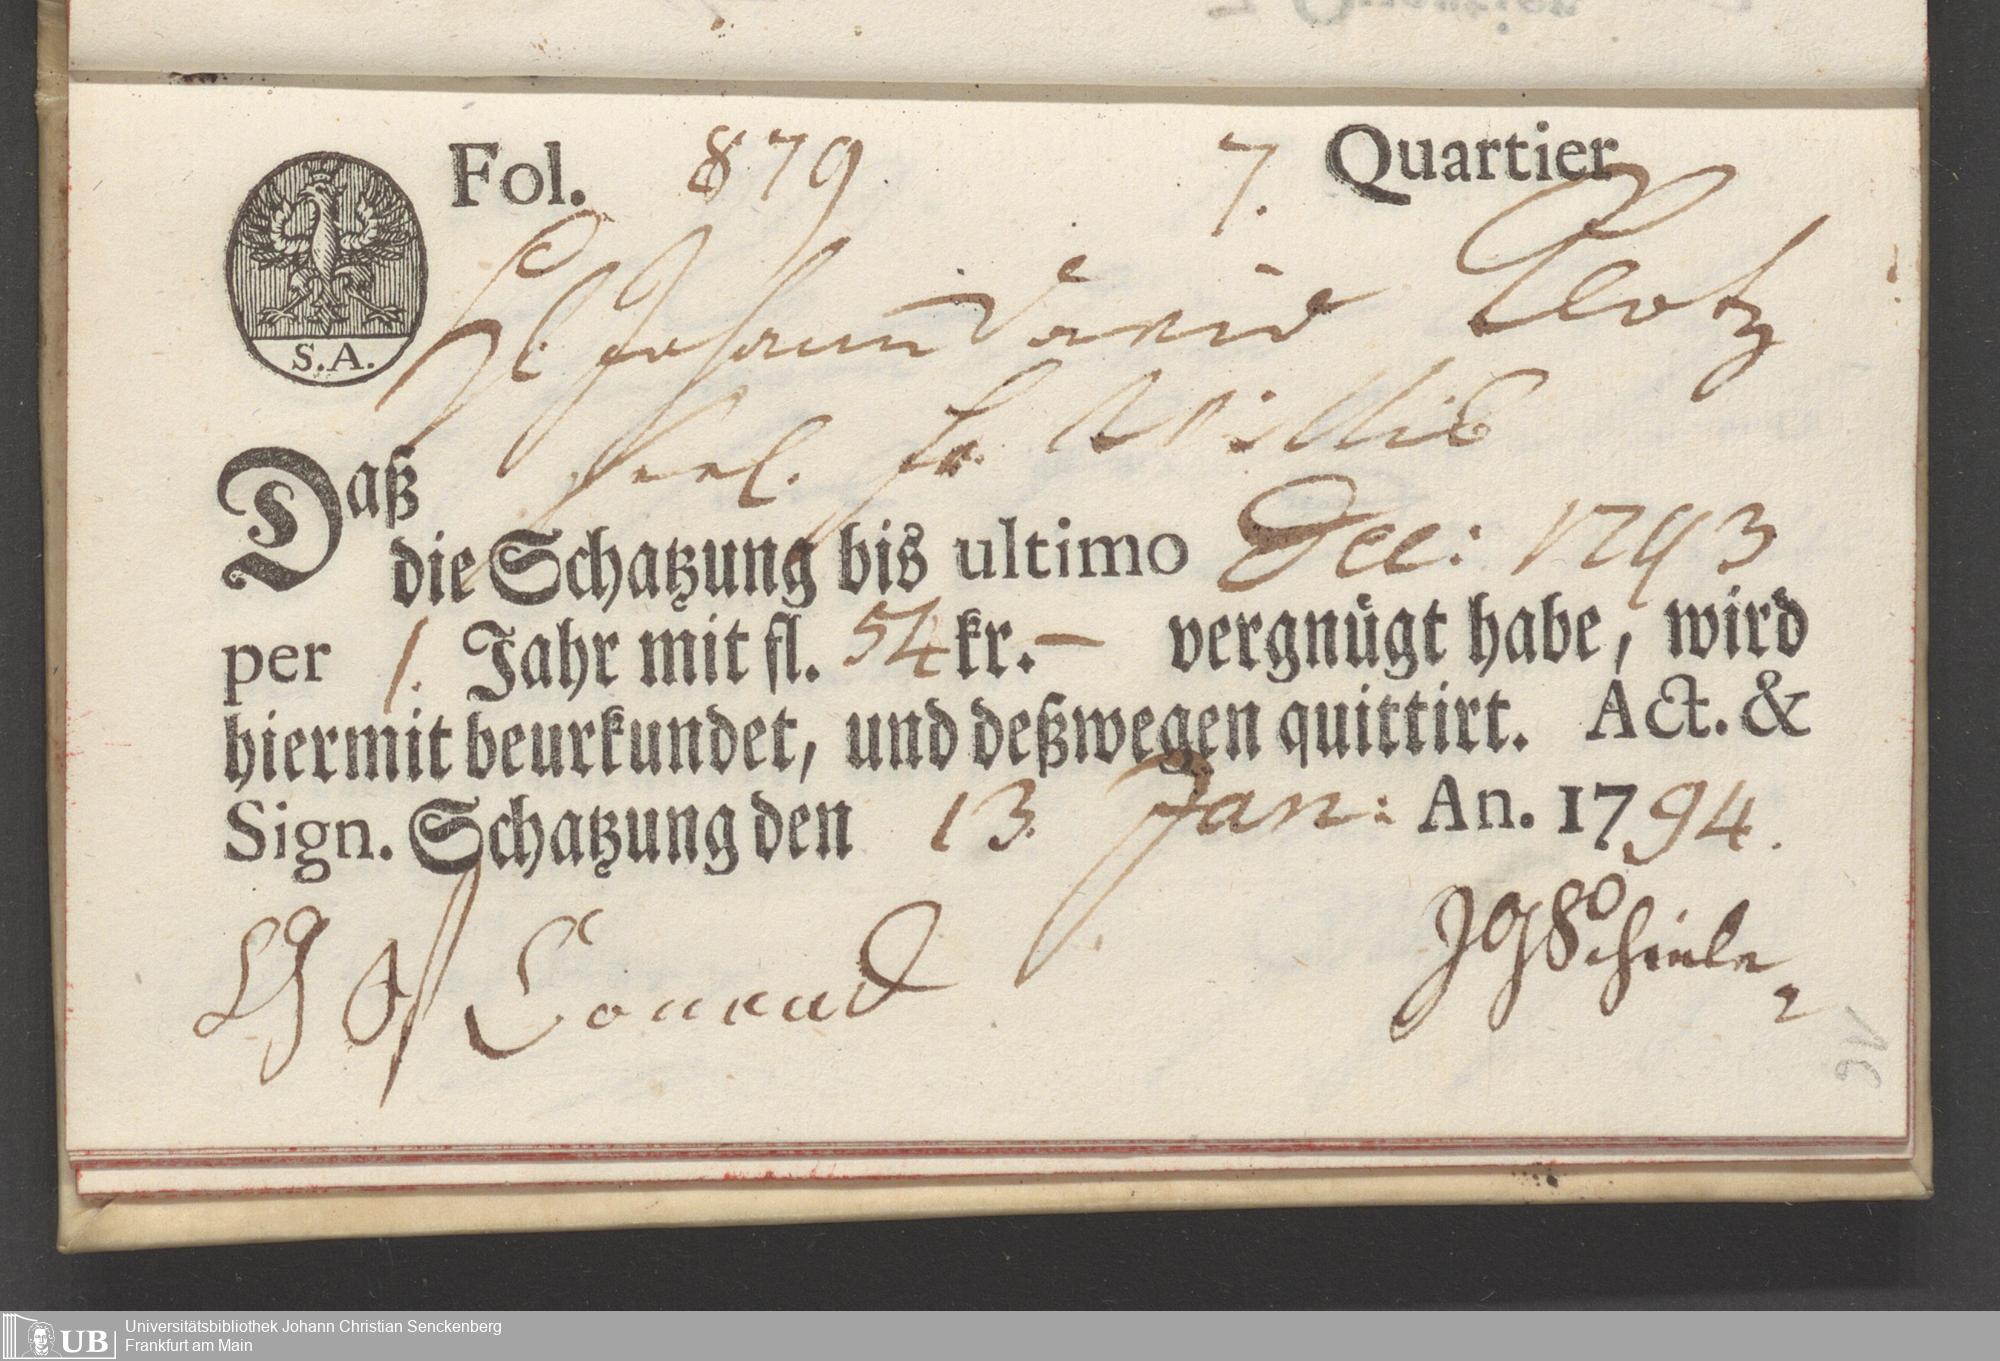 Fol. 879. 7. Quartier
Johann David Clotz
seel. fr. Willis
S.A.
Daß
die Schatzung bis ultimo Dec: 1793
per 1. Jahr mit fl. 54 kr. — vergnügt habe, wird
hiermit beurkundet, und deßwegen quittirt. Act. &
Sign. Schatzung den 13. Jan: An. 1794.
Conrad JGSchiele
UB Universitätsbibliothek Johann Christian Senckenberg
Frankfurt am Main